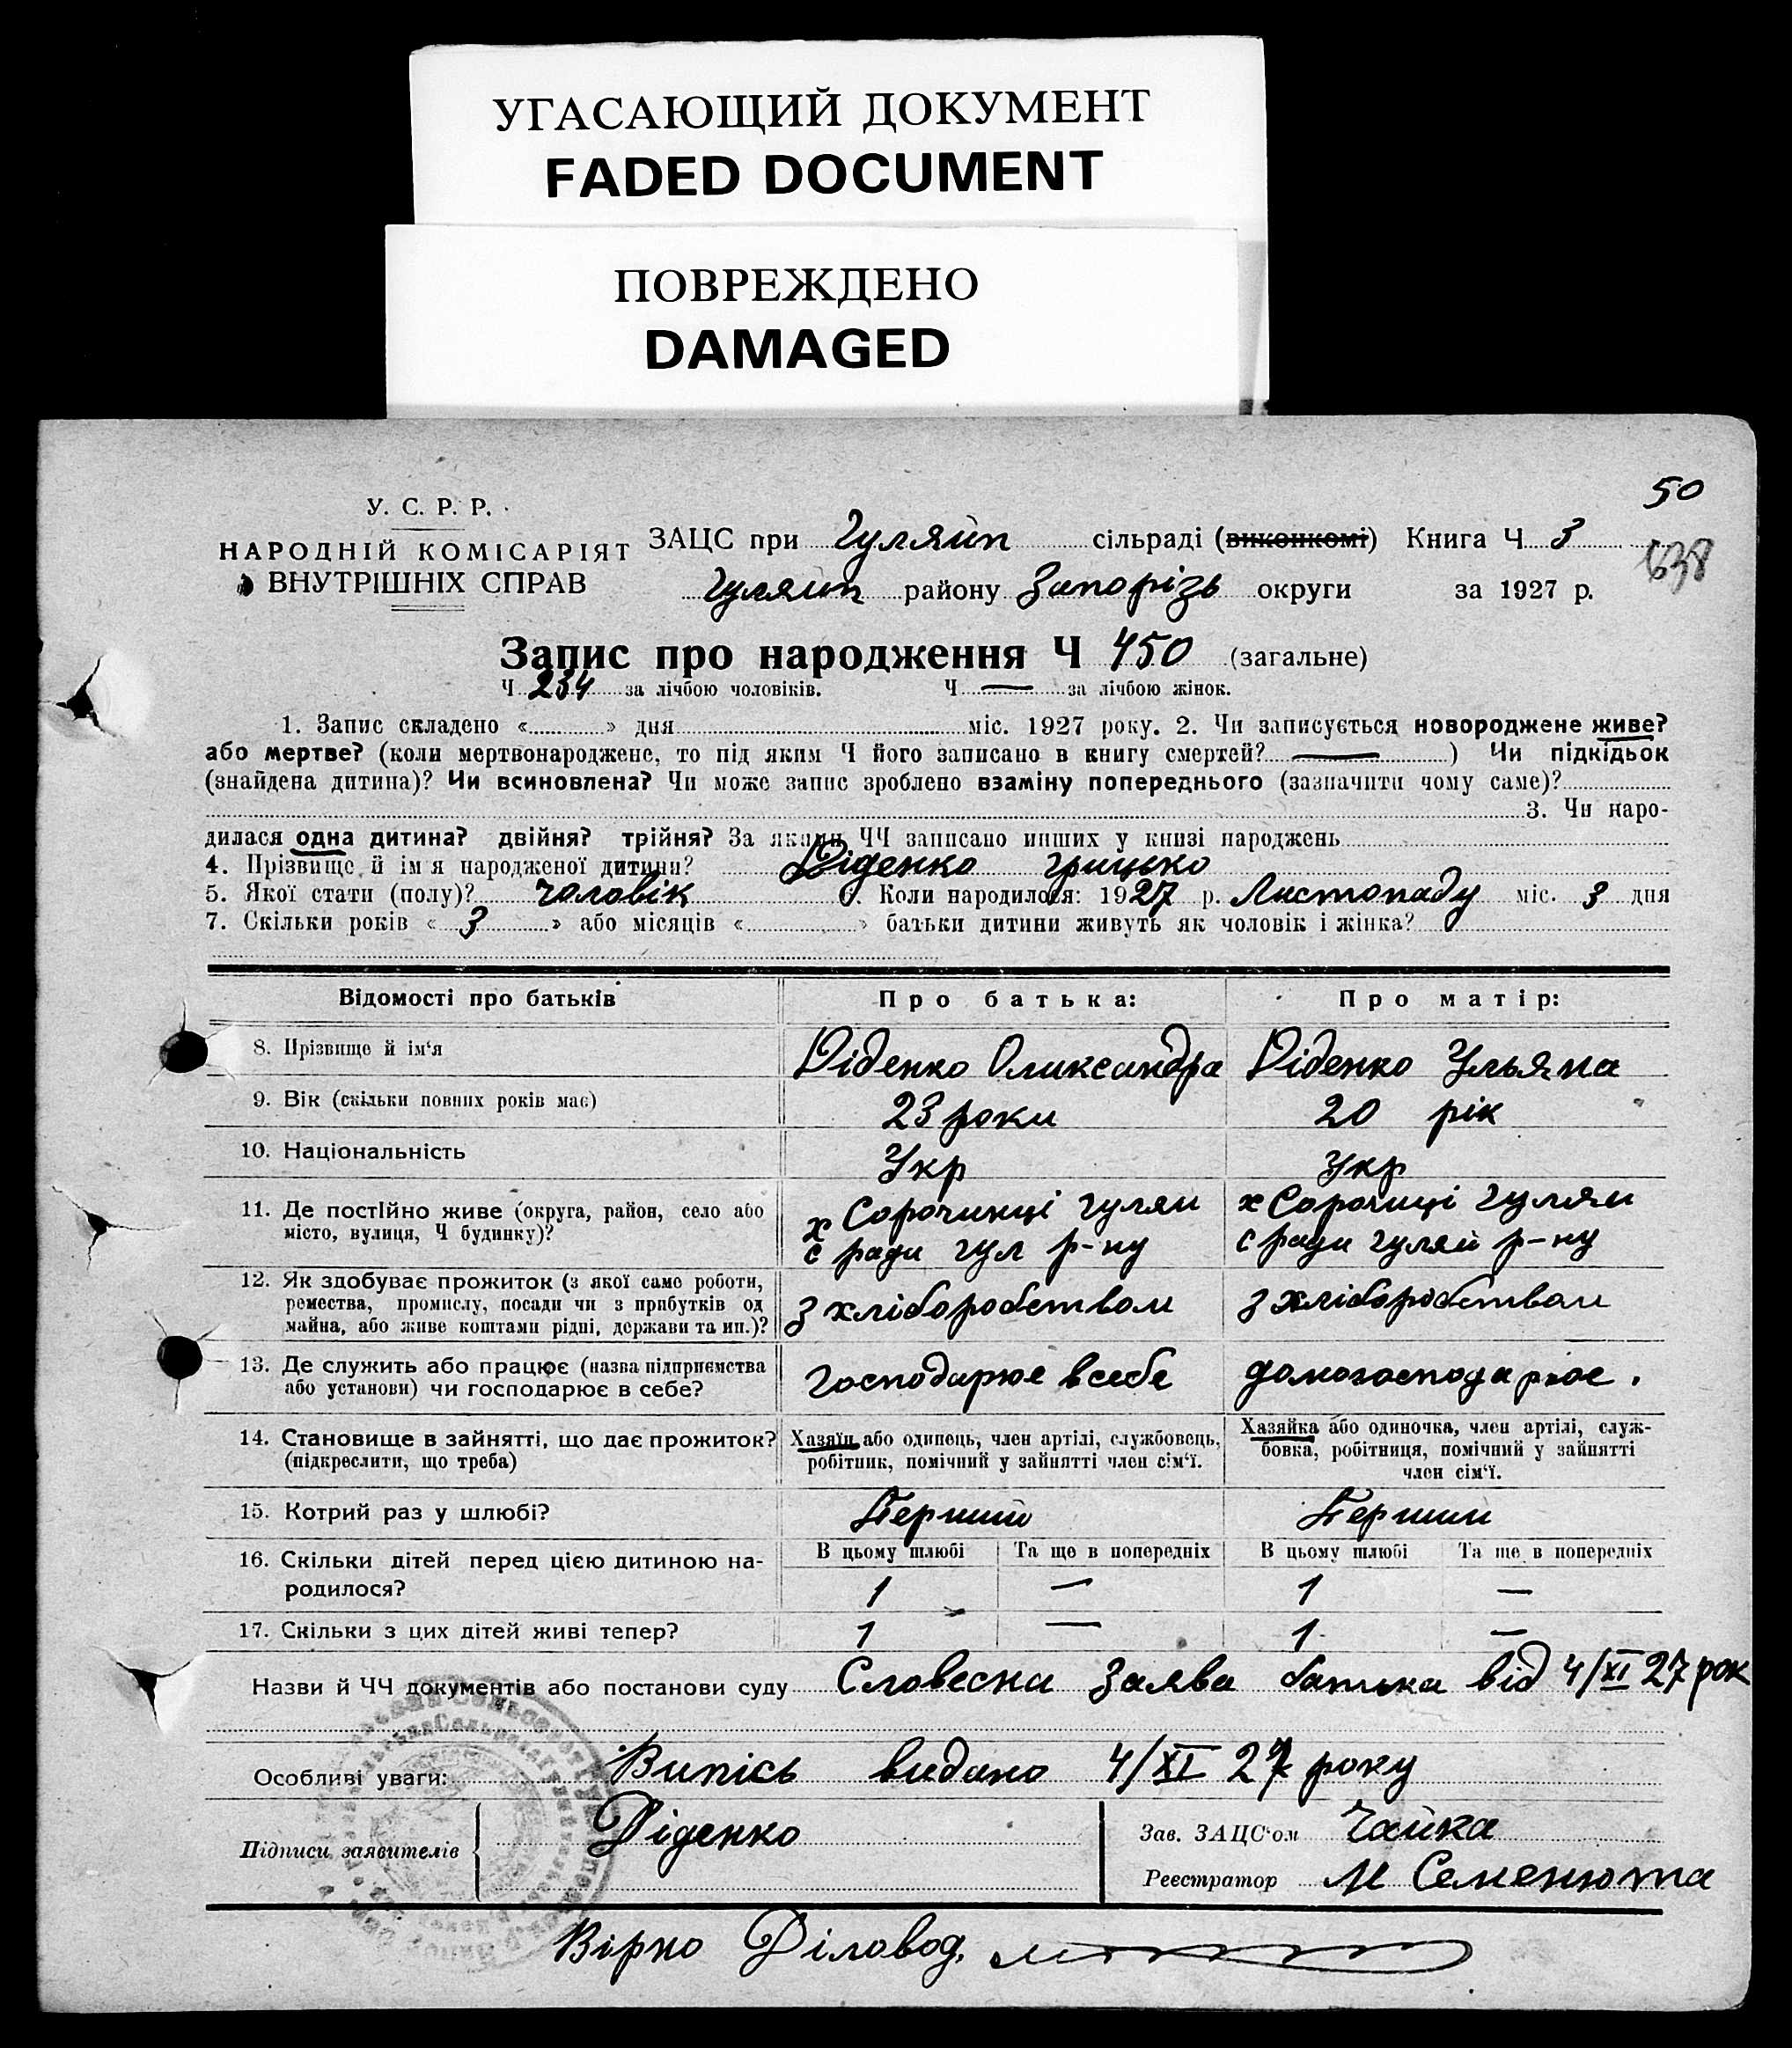 УГАСАЮЩИЙ ДОКУМЕНТ
FADED DOCUMENT
ПОВРЕЖДЕНО
DAMAGED
50
638
У. С. Р. Р.
НАРОДНІЙ КОМІСАРІЯТ
ВНУТРІШНІХ СПРАВ
ЗАЦС при Гуляйп сільраді (виконкомі) Книга Ч 3
Гуляйп району Запорізь округи за 1927 р.
Запис про народження Ч 450 (загальне)
Ч 234 за лічбою чоловіків. Ч — за лічбою жінок.
1. Запис складено «» дня міс. 1927 року. 2. Чи записується новороджене живе?
або мертве? (коли мертвонароджене, то під яким Ч його записано в книгу смертей? —) Чи підкідьок
(знайдена дитина)? Чи всиновлена? Чи може запис зроблено взаміну попереднього (зазначити чому саме)?
3. Чи наро-
дилася одна дитина? двійня? трійня? За якими ЧЧ записано инших у книзі народжень
4. Прізвище й ім'я народженої дитини? Діденко Грицько
5. Якої стати (полу)? чоловік 6. Коли народилося: 1927 р. Листопаду міс. 3 дня
7. Скільки років «3» або місяців «» батьки дитини живуть як чоловік і жінка?
Відомості про батьків Про батька: Про матір:
8. Прізвище й ім'я Діденко Оликсандра Діденко Ульяна
9. Вік (скільки повних років має) 23 роки 20 рік
10. Національність Укр Укр
11. Де постійно живе (округа, район, село або х Сорочинці гуляй х Сорочиці гуляй
місто, вулиця, Ч будинку)? с ради гул р-ну с ради гуляй р-ну
12. Як здобуває прожиток (з якої само роботи,
ремества, промислу, посади чи з прибутків од з хліборобством з хліборобством
майна, або живе коштами рідні, держави та ин.)?
13. Де служить або працює (назва підприємства господарює в себе домогосподарює.
або установи) чи господарює в себе?
14. Становище в зайнятті, що дає прожиток? Хазяїн або одинець, член артілі, службовець, Хазяйка або одиночка, член артілі, служ-
(підкреслити, що треба) робітник, помічний у зайнятті член сім'ї. бовка, робітниця, помічний у зайнятті
член сім'ї.
15. Котрий раз у шлюбі? Перший Перший
16. Скільки дітей перед цією дитиною на- В цьому шлюбі Та ще в попередніх В цьому шлюбі Та ще в попередніх
родилося? 1 — 1 —
17. Скільки з цих дітей живі тепер? 1 — 1 —
Назви й ЧЧ документів або постанови суду Словесна заява батька від 4/XI 27 рок
Особливі уваги: Випісь видано 4/XI 27 року
Підписи заявителів Діденко Зав. ЗАЦС'ом Чайка
Реєстратор М Семенюта
Вірно Діловод.